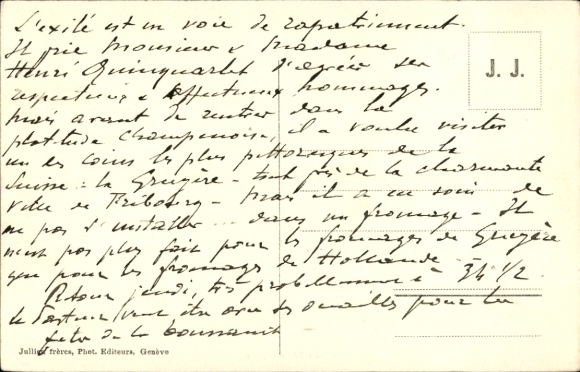 L'exilé est en voie de rapatriement.
Il prie Monsieur & Madame
Henri Quinquarlet d'agréer ses
respectueux & affectueux hommages.
Mais avant de rentrer dans la
platitude champenoise, il a voulu visiter
un des coins les plus pittoresques de la
Suisse : la Gruyère - tout près de la charmante
ville de Fribourg - Mais il a eu soin de
ne pas s'installer... dans un fromage - Il
n'est pas plus fait pour les fromages de Gruyère
que pour les fromages de Hollande.
Retour jeudi, très probablement à 3h 1/2.
le Pasteur veut être avec ses ouailles pour la
fête de la Toussaint
J. J.
Jullien frères, Phot. Editeurs, Genève